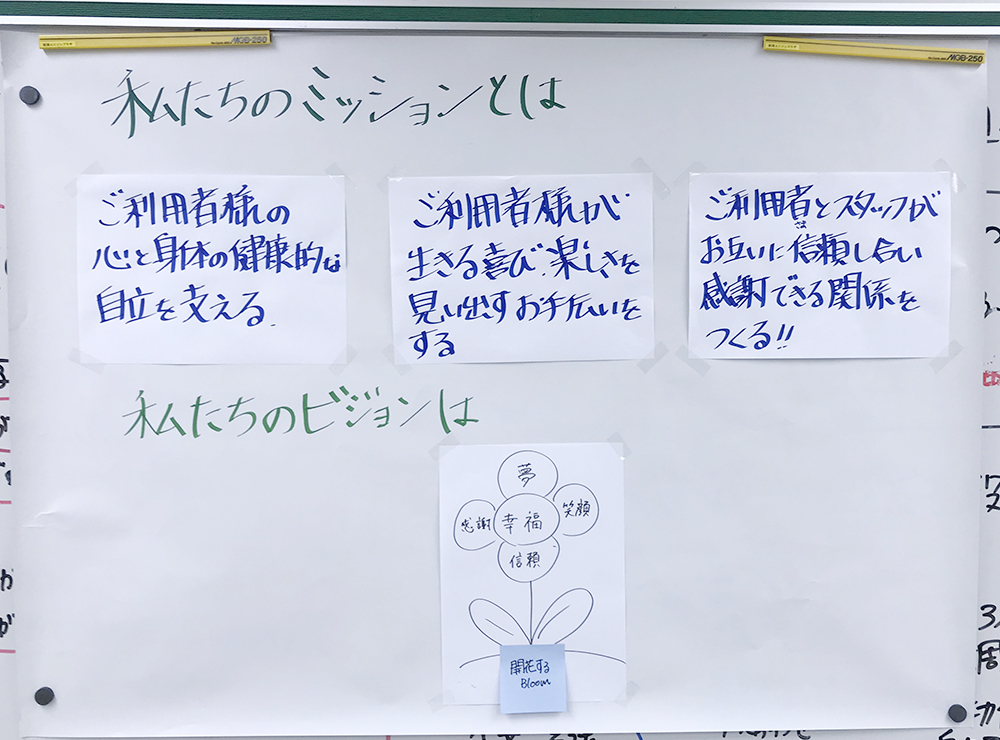 MGB-250
MGB-250
私たちのミッションとは
ご利用者様の
心と身体の健康的な
自立を支える.
ご利用者様が
生きる喜び、楽しさを
見い出すお手伝いを
する
ご利用者とスタッフが
お互いに信頼し合い
感謝できる関係を
つくる!!
私たちのビジョンは
夢
感謝
幸福
笑顔
信頼
開花する
Bloom